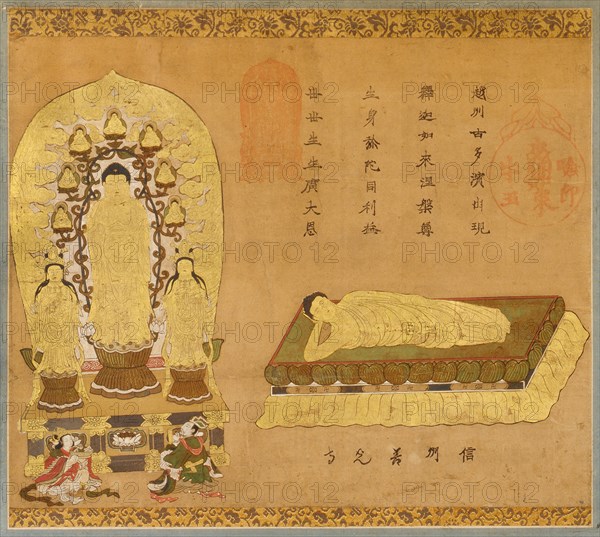 越州古多濱出現
釋迦如來涅槃尊
生身弥陀同利物
世世生生廣大恩
信州善光寺
PHOTO 12